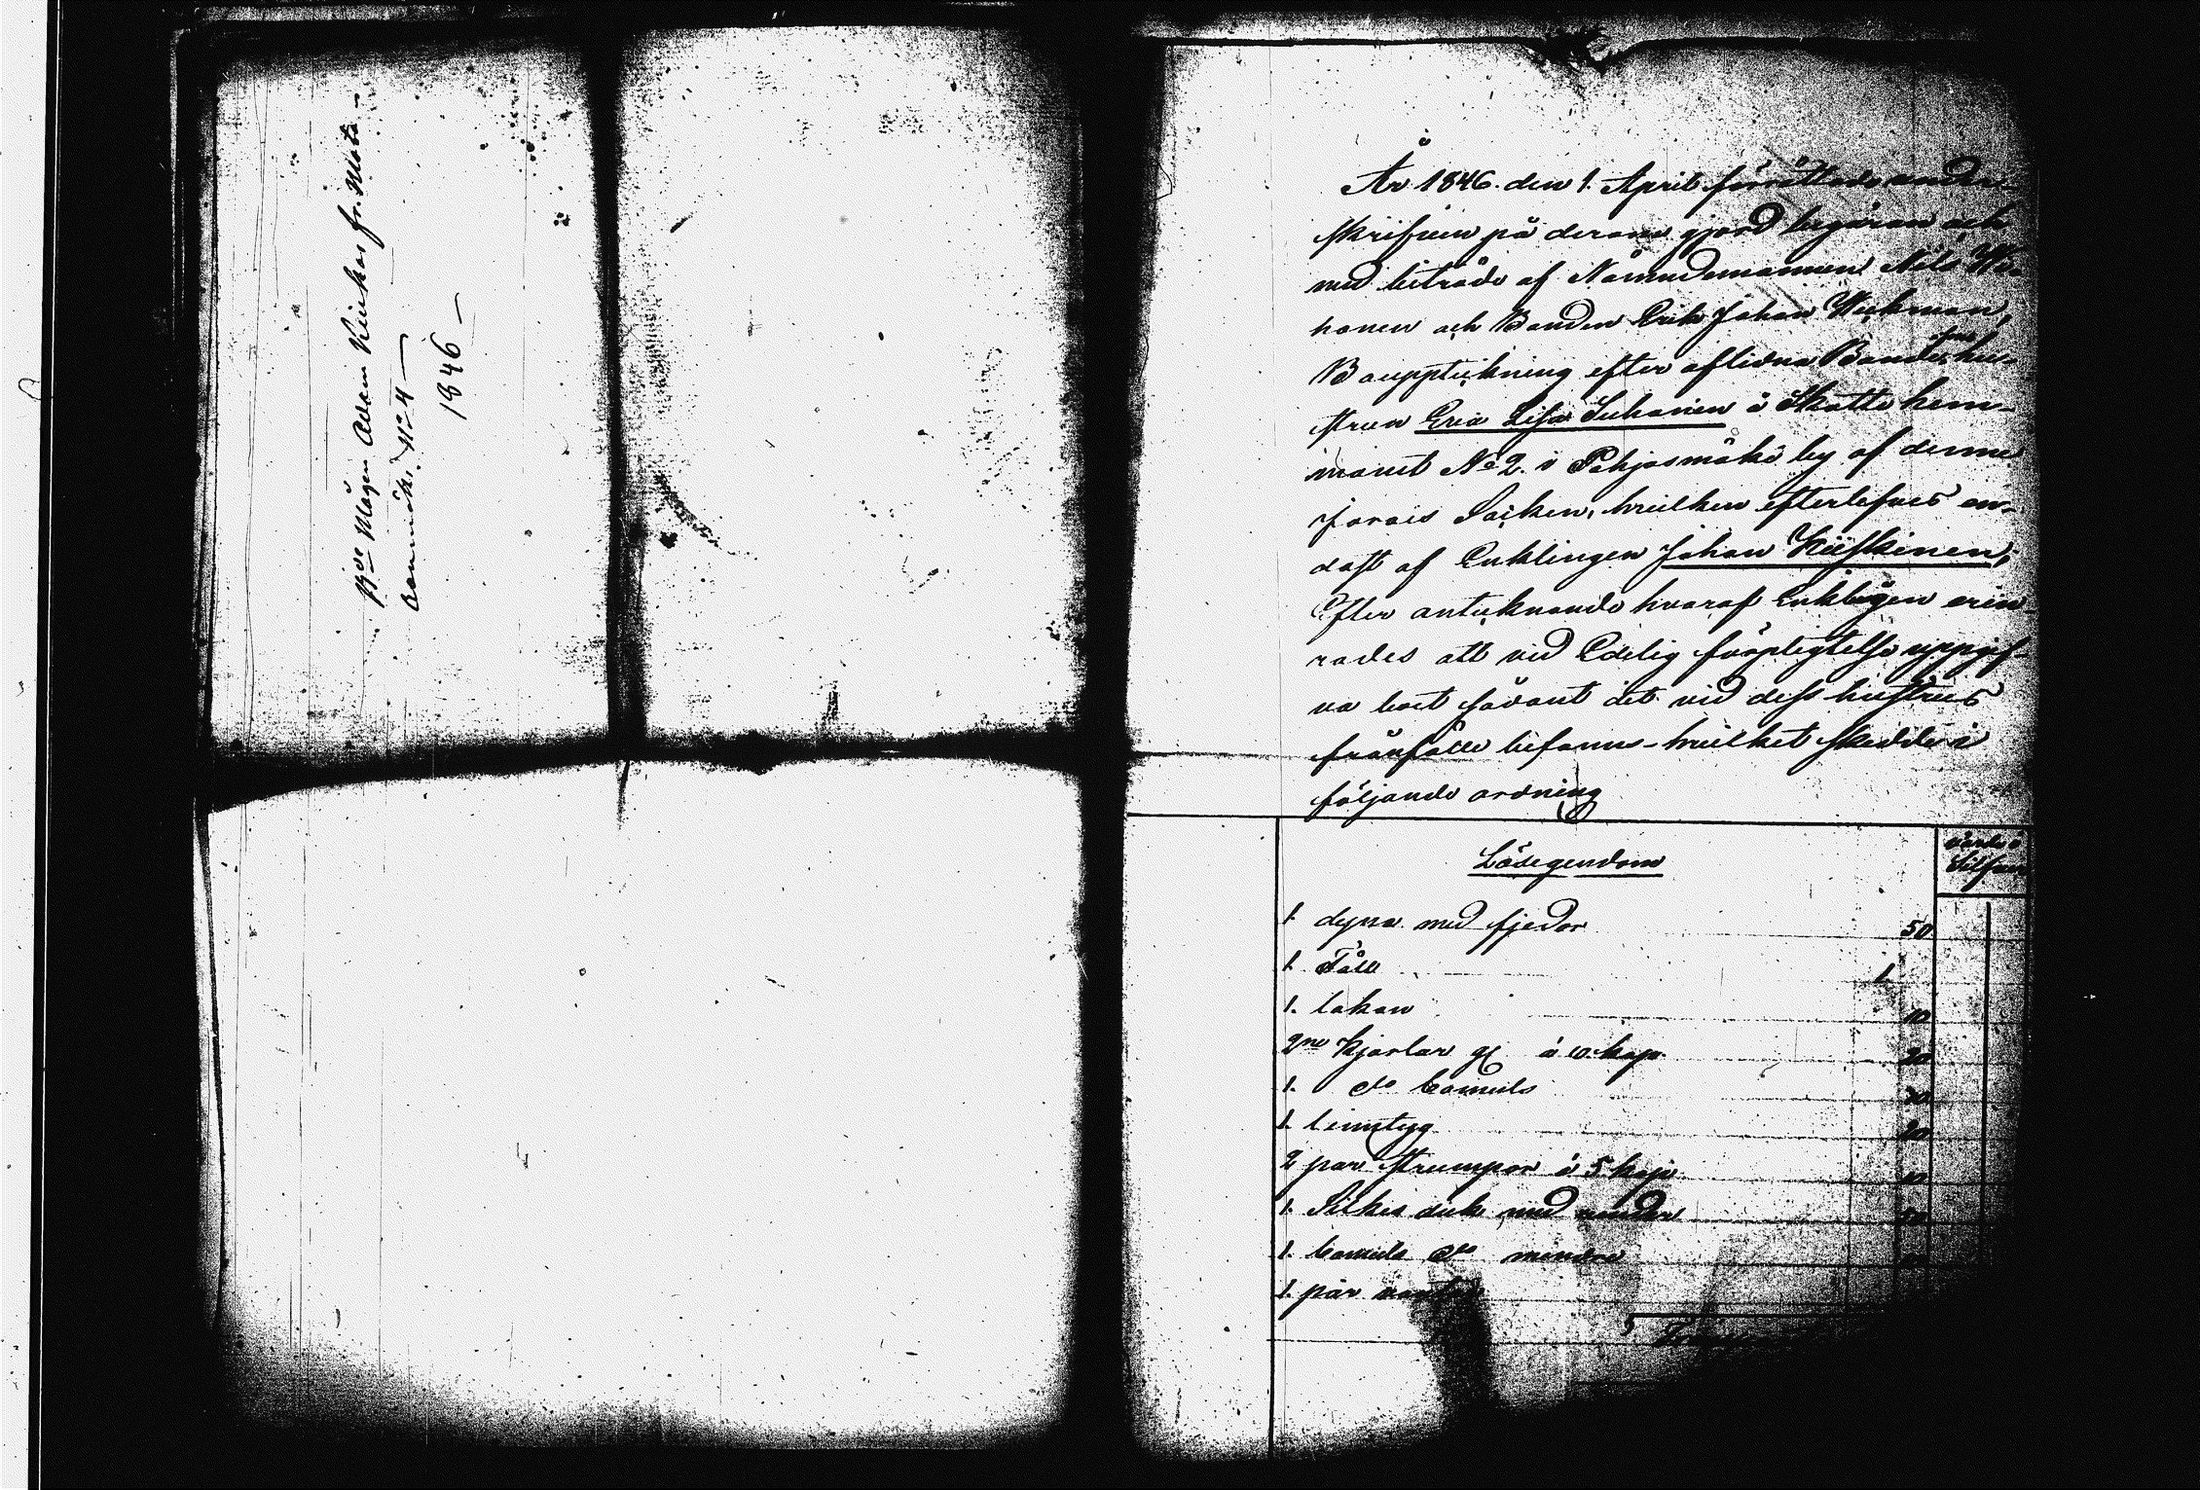 B:de Mågen Adam Kiukas fr. Mats-
aanmäki N:o 4 —
1846 —
År 1846. den 1. April förrättade under-
skrifven på derom gjord begäran och
med biträde af Nämndemannen Nils Hä-
honen och Bonden Erik Johan Weckman,
Bouppteckning efter aflidna Bonde hu-
strun Eva Lisa Tuhanen å Skatte hem-
manet No 2. i Pohjosmäki by af denne
Jorois Socken, hvilken efterlefves en-
dast af Enklingen Johan Kiiskinen;
Efter antecknande hvaraf Enklingen erin-
rades att vid Edelig förpligtelse uppgif-
va boet sådant det vid dess hustrus
frånfälle befanns - hvilket skedde i
följande ordning
Lösegendom
värde i
Silfver
1. dyna med fjedor 50
1. Fäll 1.
1. lakan 10
2ne Kjortlar gl. á 10. kop 20
1. do Camuls
1. linntyg 20
2 par strumpor á 5 kop 10
1. Silkes duk med
1. Camuls do mindre
1. par